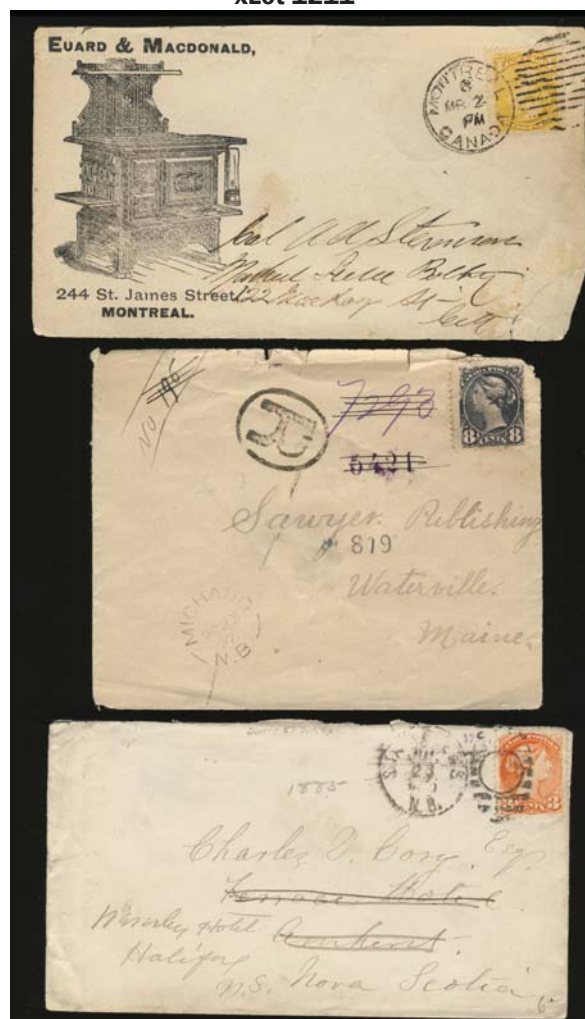 xLot 1211
EUARD & MACDONALD,
MONTREAL
6
MR 2
PM
CANADA
Col A A Stevenson
122 Mackay St
City
244 St. James Street,
MONTREAL.
No 190
R
7293
5421
8 CENTS 8
Sawyer Publishing
819
Waterville.
Maine.
MICHAUD
N.B
N.B.
1885
Charles D. Cory Esq.
Terrace Hotel
Waverley Hotel Amherst.
Halifax
N.S. Nova Scotia
6-